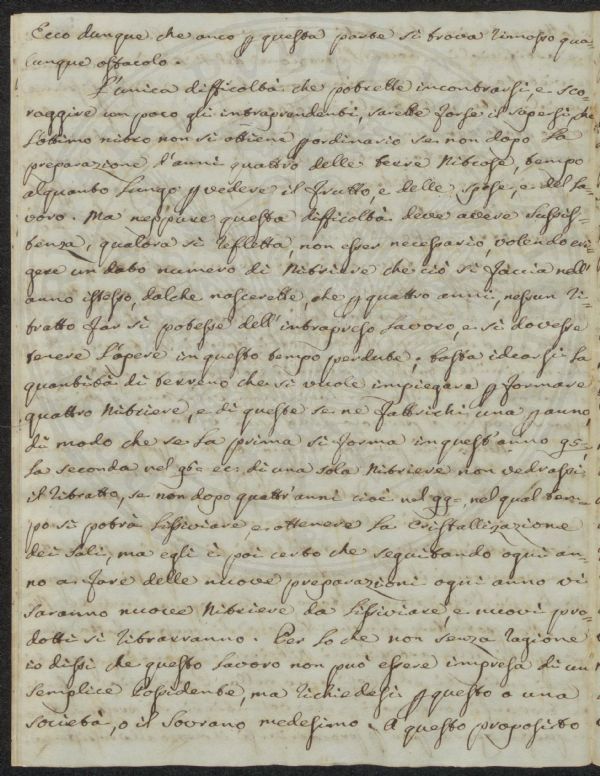 Ecco dunque che anco p questa parte si trova rimosso qua=
lunque ostacolo.
L'unica difficoltà che potrebbe incontrarsi, e sco=
raggire un poco gli intraprendenti, sarebbe forse il sapersi, che
l'ottimo nitro non si ottiene p ordinario se non dopo la
preparazione d'anni quattro delle terre Nitrose, tempo
alquanto lungo p vedere il frutto, e delle spese, e del la=
voro. Ma neppure questa difficoltà deve avere sussis=
tenza, qualora si rifletta, non esser necessario, volendo eri=
gere un dato numero di Nitriere che ciò si faccia nell'
anno istesso, dal che nascerebbe, che p quattro anni, nessun ri=
tratto far si potesse dell'intrapreso lavoro, e si dovesse
tenere l'opere in questo tempo perdute; basta idearsi la
quantità di terreno che si vuole impiegare p formare
quattro Nitriere, e di queste se ne fabbrichi una p anno,
di modo che se la prima si forma in quest'anno 95=
la seconda nel 96= ec: di una sola Nitriere non vedrassi
il ritratto, se non dopo quattr'anni cioè nel 99=, nel qual tem=
po si potrà lisiviare, e ottenere la cristallizazione
dei sali, ma egli è poi certo che seguitando ogni an=
no a fare delle nuove preparazioni ogni anno vi
saranno nuove Nitriere da lisiviare, e nuovi pro=
dotti si ritrarranno. Per lo che non senza ragione
io dissi che questo lavoro non può essere impresa di un
semplice Possidente, ma richiedesi p questo o una
società, o il Sovrano medesimo. A questo proposito